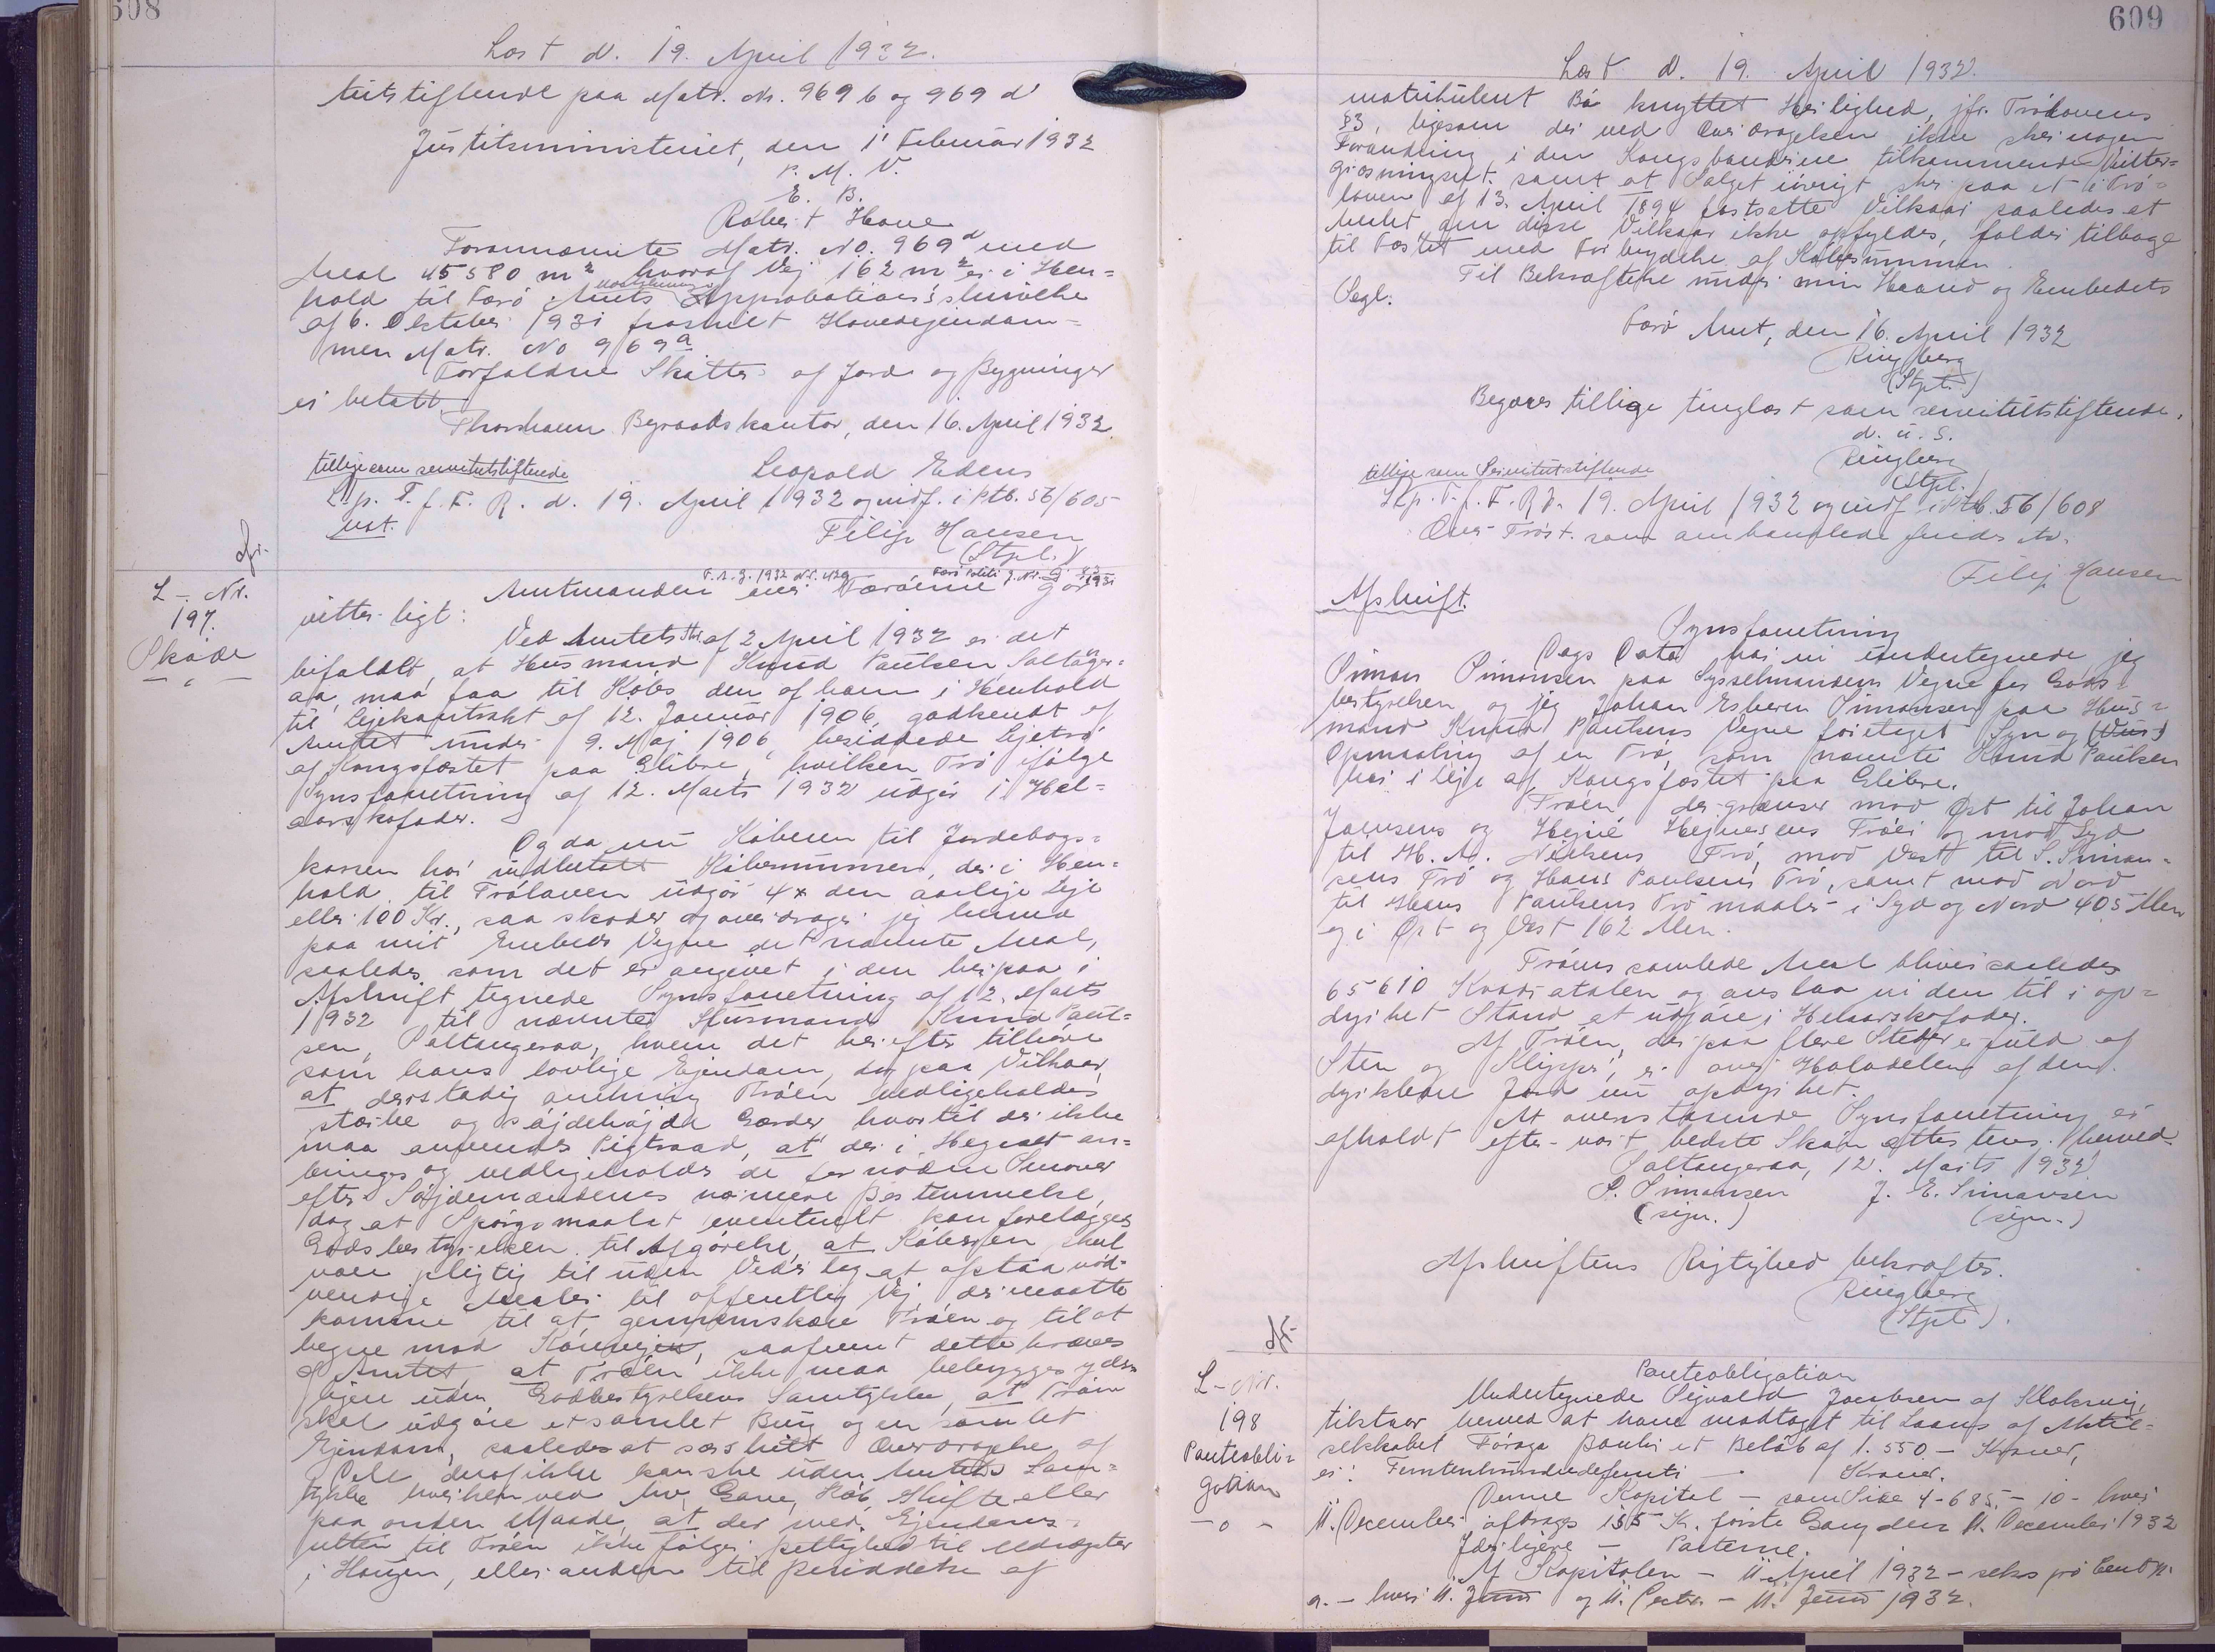 608
Læst d. 19. April 1932.
tutstiftende paa Matr. Nr. 969 b og 969 d
Justitsministeriet, den 1' Februar 1932
P. M. V.
E. B.
Robert Hove
Forannævnte Matr. No. 969d med
Areal 45580 m2 hvoraf Vej 162 m2 er i Hen=
hold til Færø Amts Approbations
af 6. Oktober 1931 fraskilt Hovedejendom=
men Matr. No 969a
Forfaldne Skatter af Jord og Bygninger
er betalt.
Thorshavn Byraadskontor, den 16. April 1932
Leopold Edens
tillige som servitutstiftende
Lp. T. f. F. R. d. 19. April 1932 og indf. i Ptb. 56/605
Filip Hansen
(Stpl.)
L - Nr.
197.
Skøde
F. A. J. 1932 Nr. 429
Amtmanden over Færøerne gør
vitterligt:
Ved Amtets Skr. af 2 April 1932 er det
bifaldt, at Husmand Knud Paulsen, Saltanger=
aa, maa faa til Købs den af ham i Henhold
til Lejekontrakt af 12. Januar 1906, godkendt af
Amtet under 9. Maj 1906, besiddede Lejetrø
af Kongsfæstet paa Glibre, hvilken Trø ifølge
Synsforretning af 12. Marts 1932 udgør i Hel=
aarskofoder.
Og da nu Køberen til Jordebogs=
kassen har indbetalt Købesummen, der i Hen=
hold til Trøloven udgør 4 x den aarlige Leje
eller 100 Kr., saa skøder og overdrager jeg herved
paa mit Embeds Vegne det nævnte Areal,
saaledes som det er angivet i den herpaa i
Afskrift tegnede Synsforretning af 12. Marts
1932 til nævnte Husmand Knud Paul=
sen, Saltangeraa, hvem det herefter tilhører
som hans lovlige Ejendom, dog paa Vilkaar,
at der stadig omkring Trøen vedligeholdes
stærke og søjdehøjde Gærder hvortil der ikke
maa anvendes Pigtraad, at der i Hegnet an=
bringes og vedligeholdes de fornødne Smover
efter Søjdemændenes nærmere Bestemmelse,
dog at Spørgsmaalet eventuelt kan forelægges
Godsbestyrelsen til Afgørelse, at Køberen skal
være pligtig til uden Vederlag at afstaa nød=
vendige Arealer til offentlig Vej der maatte
komme til at gennemskære Trøen og til at
hegne mod Kørevejen, saafremt dette kræves
af Amtet, at Trøen ikke maa bebygges yder=
ligere uden Godsbestyrelsens Samtykke, at Trøen
skal udgøre et samlet Brug og en samlet
Ejendom, saaledes at særskilt Overdragelse af
Dele deraf ikke kan ske uden Amtets Sam=
tykke hverken ved Arv, Gave, Køb, Skifte eller
paa anden Maade, at der med Ejendoms=
retten til Trøen ikke følger Rettighed til Uddrægter
i Haugen, eller anden til Besiddelse af
609
Læst d. 19. April 1932.
matrikuleret Bø knyttet Herlighed, jfr. Trølovens
§3, ligesom der ved Overdragelsen ikke sker nogen
Forandring i den Kongsbønderne tilkommende Vinter=
græsningsret samt at Salget iøvrigt sker paa et i Trø=
loven af 13. April 1894 fastsatte Vilkaar saaledes at
Arealet om disse Vilkaar ikke opfyldes, falder tilbage
til Fæstet med Forbrydelse af Købesummen.
Til Bekræftelse under min Haand og Embedets
Segl.
Færø Amt, den 16. April 1932
Ringberg
(Stpl.)
Begæres tillige tinglæst som servitutstiftende.
d. u. s.
Ringberg
(Stpl.)
tillige som Servitutstiftende
Lp. T. f. F. R d. 19. April 1932 og indf. i Ptb. 56/608
Filip Hansen
Afskrift.
Synsforretning
Dags Dato har vi undertegnede, jeg
Simon Simonsen paa Sysselmandens Vegne for Gods=
bestyrelsen og jeg Johan Esbern Simonsen paa Hus=
mand Knud Paulsens Vegne foretaget Syn og
Opmaaling af en Trø, som nævnte Knud Paulsen
har i leje af Kongsfæstet paa Glibre.
Trøen der grænser mod Øst til Johan
Joensens og Hejne Hejnesens Trøer og mod Syd
til H. A. Nielsens Trø, mod Vest til S. Simon=
sens Trø og Hans Paulsens Trø, samt mod Nord
til Hans Paulsens Trø maaler i Syd og Nord 405 Alen
og i Øst og Vest 162 Alen.
Trøens samlede Areal bliver saaledes
65610 Kvadratalen og anslaa vi den til i op=
dyrket Stand at udgøre i Helaarskofoder.
Af Trøen, der paa flere Steder er fuld af
Sten og Klipper, er over Halvdelen af den
dyrkbare Jord nu opdyrket.
At ovenstaaende Synsforretning er
afholdt efter vort bedste Skøn attesteres herved.
Saltangeraa, 12. Marts 1932
S. Simonsen J. E. Simonsen
(sign.) (sign.)
Afskriftens Rigtighed bekræftes.
Ringberg
(Stpl.)
L - Nr.
198
Panteobli=
gation
Panteobligation
Undertegnede Sigvald Jacobsen af Klaksvig,
tilstaar herved at have modtaget til Laans af Aktie=
selskabet Føroya Banki et Beløb af 1.550 - Kroner,
er: Femtenhundredefemti - Kroner.
Denne Kapital - som Side 4-685 - 10 - hver
11. December afdrages 155 Kr. første Gang den 11. December 1932
Yderligere - Parterne.
Af Kapitalen - 11 April 1932 - seks pro Cent p.
a. - hver 11. Juni og 11. Decbr. - 11. Juni 1932.